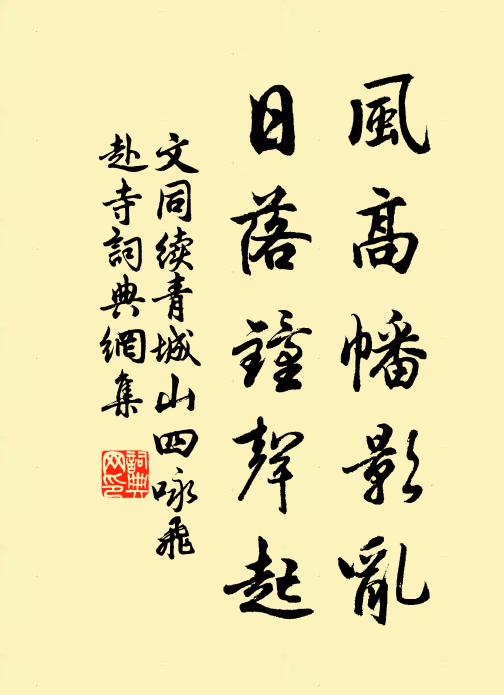 風高幡影亂
日落鐘聲起
文同續青城山四咏飛
赴寺詞典網集
詞典网印